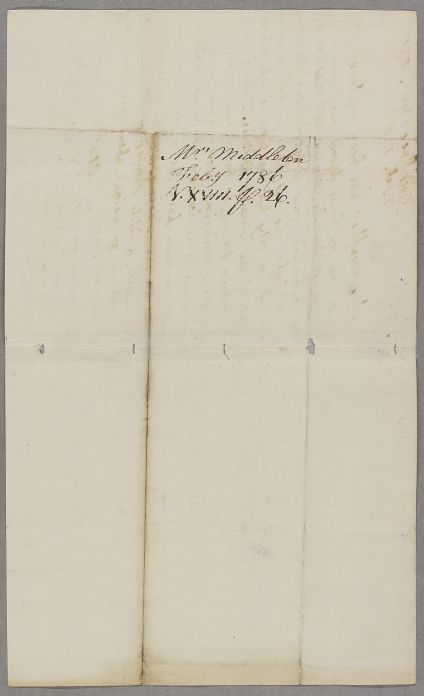 Mr Middleton
Feby 1786
V. XVIII. p. 26.